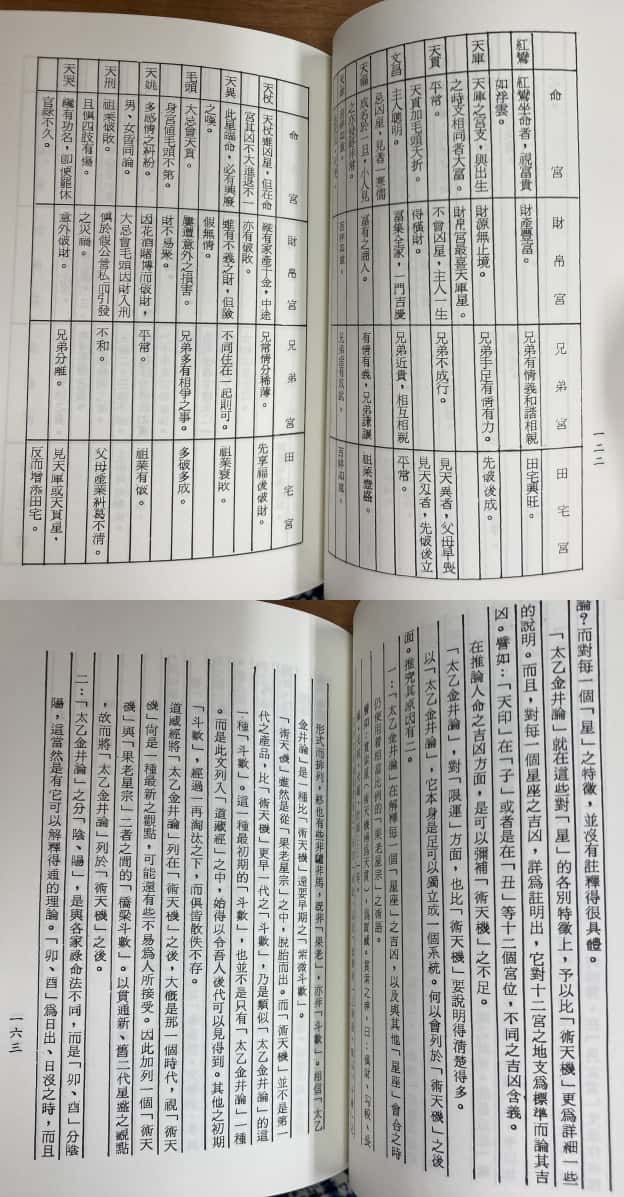 一二二
命宮
財帛宮
兄弟宮
田宅宮
紅鸞
紅鸞坐命者,視富貴
如浮雲。
財產豐富。
兄弟有情義和諧相親
田宅興旺。
天庫
天庫之宮支,與出生
之時支相同者大富。
財源無止境。
財帛宮最喜天庫星。
兄弟手足有情有力。
先破後成。
天貫
平常。
天貫加毛頭夭折。
不會凶星,主人一生
得橫財。
兄弟不成行。
見天異者,父母早喪
見天刃者,先破後立
文昌
主人聰明。
忌凶星,見者一寒儒
富集全家,一門吉慶
兄弟近貴,相互相親
平常。
成名於一日,小人見
富有之商人。
有情有義,兄弟謙讓
祖業豐盛。
命宮
財帛宮
兄弟宮
田宅宮
天杖
天杖雖凶星,但在命
宮其凶不大進退不一
縱有家產千金,中途
亦有破敗。
兄常情分稀薄。
先享福後破財。
天異
此星臨命,必有興廢
之嘆。
雖有不義之財,但險
假無情。
不同住在一起則可。
祖業衰敗。
毛頭
大忌會天貫。
身宮值毛頭不第。
屢遭意外之損害。
財不易聚。
兄弟多有相爭之事。
多破多成。
天姚
多感情之糾紛。
男、女皆同論。
因花酒賭博而破財,
大忌會毛頭因財入刑
平常。
祖業有破。
天刑
祖業破敗。
且慎四肢有傷。
慎於假公營私而引發
之災禍。
不和。
父母產業糾葛不清。
天哭
縱有功名,即便罷休
官祿不久。
意外破財。
兄弟分離。
見天庫或天貫星,
反而增添田宅。
論?而對每一個「星」之特徵,並沒有註釋得很具體。
「太乙金井論」就在這些對「星」的各別特徵上,予以比「術天機」更為詳細一些
的說明。而且,對每一個星座之吉凶,詳為註明出,它對十二宮之地支為標準而論其吉
凶。譬如:「天印」在「子」或者是在「丑」等十二個宮位,不同之吉凶含義。
在推論人命之吉凶方面,是可以彌補「術天機」之不足。
「太乙金井論」,對「限運」方面,也比「術天機」要說明得清楚得多。
以「太乙金井論」,它本身是足可以獨立成一個系統。何以會列於「術天機」之後
面。推究其原因有二。
一:「太乙金井論」在解釋每一個「星座」之吉凶,以及與其他「星座」會合之時
仍使用着相當比例的「果老星宗」之術語。
形式而排列,終也有些非驢非馬,既非「果老」,亦非「斗數」。相信「太乙
金井論」是一種比「術天機」還要早期之「紫微斗數」。
「術天機」雖然是從「果老星宗」之中,脫胎而出。而「術天機」並不是第一
代之產品,比「術天機」更早一代之「斗數」,乃是類似「太乙金井論」的這
一種「斗數」。這一種最初期的「斗數」,也並不是只有「太乙金井論」一種
。而是此文列入「道藏經」之中,始得以令吾人後代可以見得到。其他之初期
「斗數」,經過一再淘汰之下,而俱皆散佚不存。
道藏經將「太乙金井論」列在「術天機」之後,大概是那一個時代,視「術天
機」尚是一種最新之觀點,可能還有些不易為人所接受。因此加列一個「術天
機」與「果老星宗」二者之間的「橋樑斗數」。以貫通新、舊二代星盛之觀點
,故而將「太乙金井論」列於「術天機」之後。
二:「太乙金井論」之分「陰、陽」,是與各家祿命法不同,而是「卯、酉」分陰
陽,這當然是有它可以解釋得通的理論。「卯、酉」為日出、日沒之時,而且
一六三